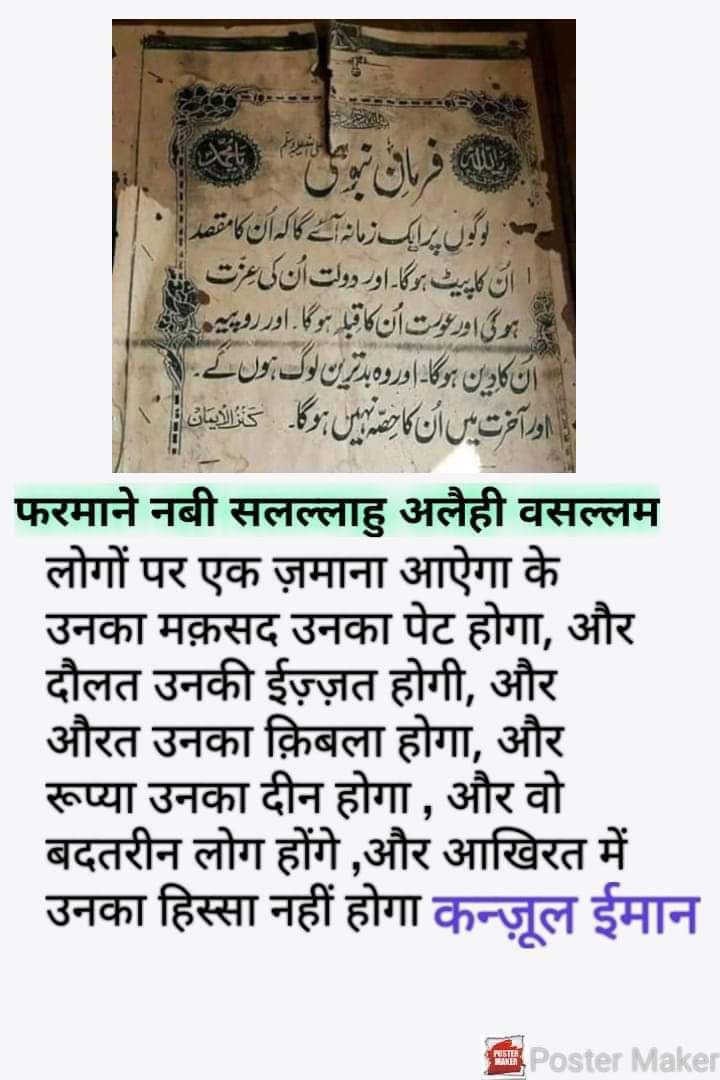 یا اللہ
یا محمد
فرمانِ نبوی
لوگوں پر ایک زمانہ آئے گا کہ اُن کا مقصد
اُن کا پیٹ ہوگا۔ اور دولت اُن کی عزّت
ہوگی اور عورت اُن کا قبلہ ہوگا۔ اور روپیہ
اُن کا دِین ہوگا۔ اور وہ بدترین لوگ ہوں گے۔
اور آخرت میں اُن کا حِصّہ نہیں ہوگا۔ کنزُالایمان
फरमाने नबी सलल्लाहु अलैही वसल्लम
लोगों पर एक ज़माना आऐगा के
उनका मक़सद उनका पेट होगा, और
दौलत उनकी ईज़्ज़त होगी, और
औरत उनका क़िबला होगा, और
रूप्या उनका दीन होगा , और वो
बदतरीन लोग होंगे ,और आखिरत में
उनका हिस्सा नहीं होगा कन्ज़ूल ईमान
POSTER MAKER Poster Maker